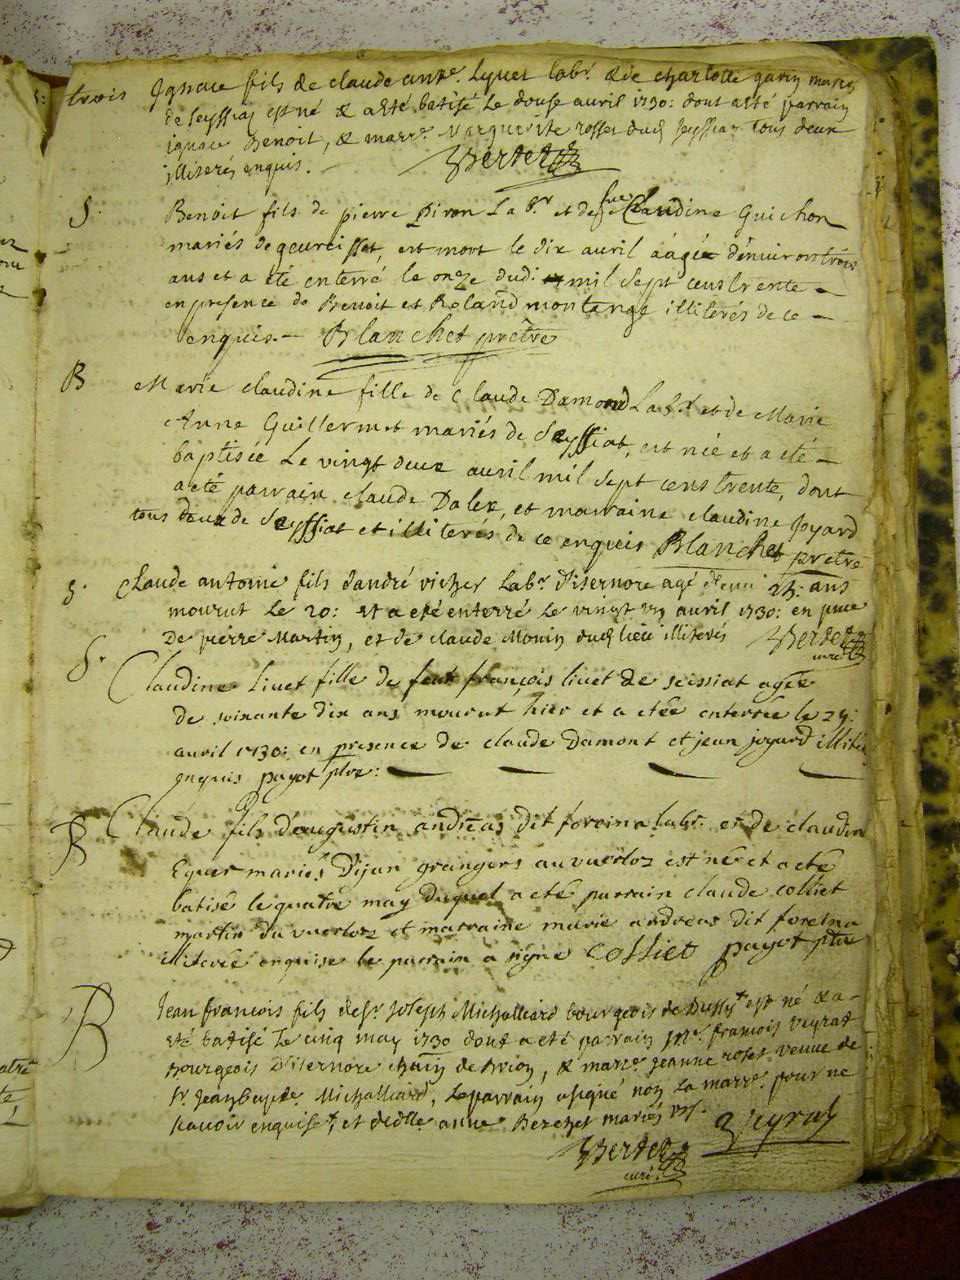 trois Ignace fils de claude anne Lyvet labr. & de charlotte garin mariés
de seyssiat est né & a esté batisé Le douse avril 1730: dont a esté parrain
ignace Benoit, & marr.e Marguerite rosset dud seyssiat tous deux
illiterés enquis. Berted
S. Benoit fils de pierre Piron La.br et de feue Claudine Guichon
mariés de geureisset, est mort le dix avril áágé dénuiron trois
ans et a été enterré le onze dudi mil sept cens trente
en presence de Benoit et Roland montange illiterés de ce
enquis. Blanchet prêtre
B Marie claudine fille de Claude Damond La.br et de Marie
Anne Guillermet mariés de Seyssiat, est née et a été
baptisée Le vingt deux avril mil sept cens trente, dont
a eté parrain claude Dalex, et marraine claudine Joyard
tous deux de Seyssiat et illiterés de ce enquis Blanchet pretre
S. Claude antoine fils d'andré vicher Labr. d'isernore agé 24: ans
mourut Le 20: et a eté enterré Le vingt un avril 1730: en pnce
de pierre Martin, et de claude Monin dud lieu illiterés Berted
curé
S. Claudine Livet fille de feut françois livet de seissiat agée
de soixante dix ans mourut hier et a etée enterrée le 24:
avril 1730: en presence de claude Damont et jean joyard illité
enquis payot ptre:
B Claude fils d'augustin andréas dit foreina labr. et de claudin
Eyuer mariés D'ijan grangers au vuerloz est né et a eté
batisé le quatre may duquel a eté parrain claude colliet
martin du vuerloz et marraine marie andreas dit foreina
illiterée enquise le parrain a signé Colliet payot ptre
B Jean francois fils de sr. Joseph Michalliard bourgeois de Dussyt est né & a
esté batisé Le cinq may 1730 dont a eté parrain sr. francois veyrat
bourgeois D'isernore de brion, & marr.e jeanne roset veuve de
sr. jeanbapte. Michalliard, Le parrain a signé non La marr.e pour ne
scavoir enquise, et de dlle anne Berchet mariés
Veyrat
Berted
curé